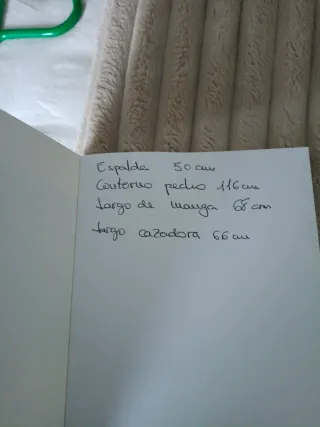 Espalda 50 cm
Contorno pecho 116 cm
Largo de manga 68 cm
Largo cazadora 66 cm